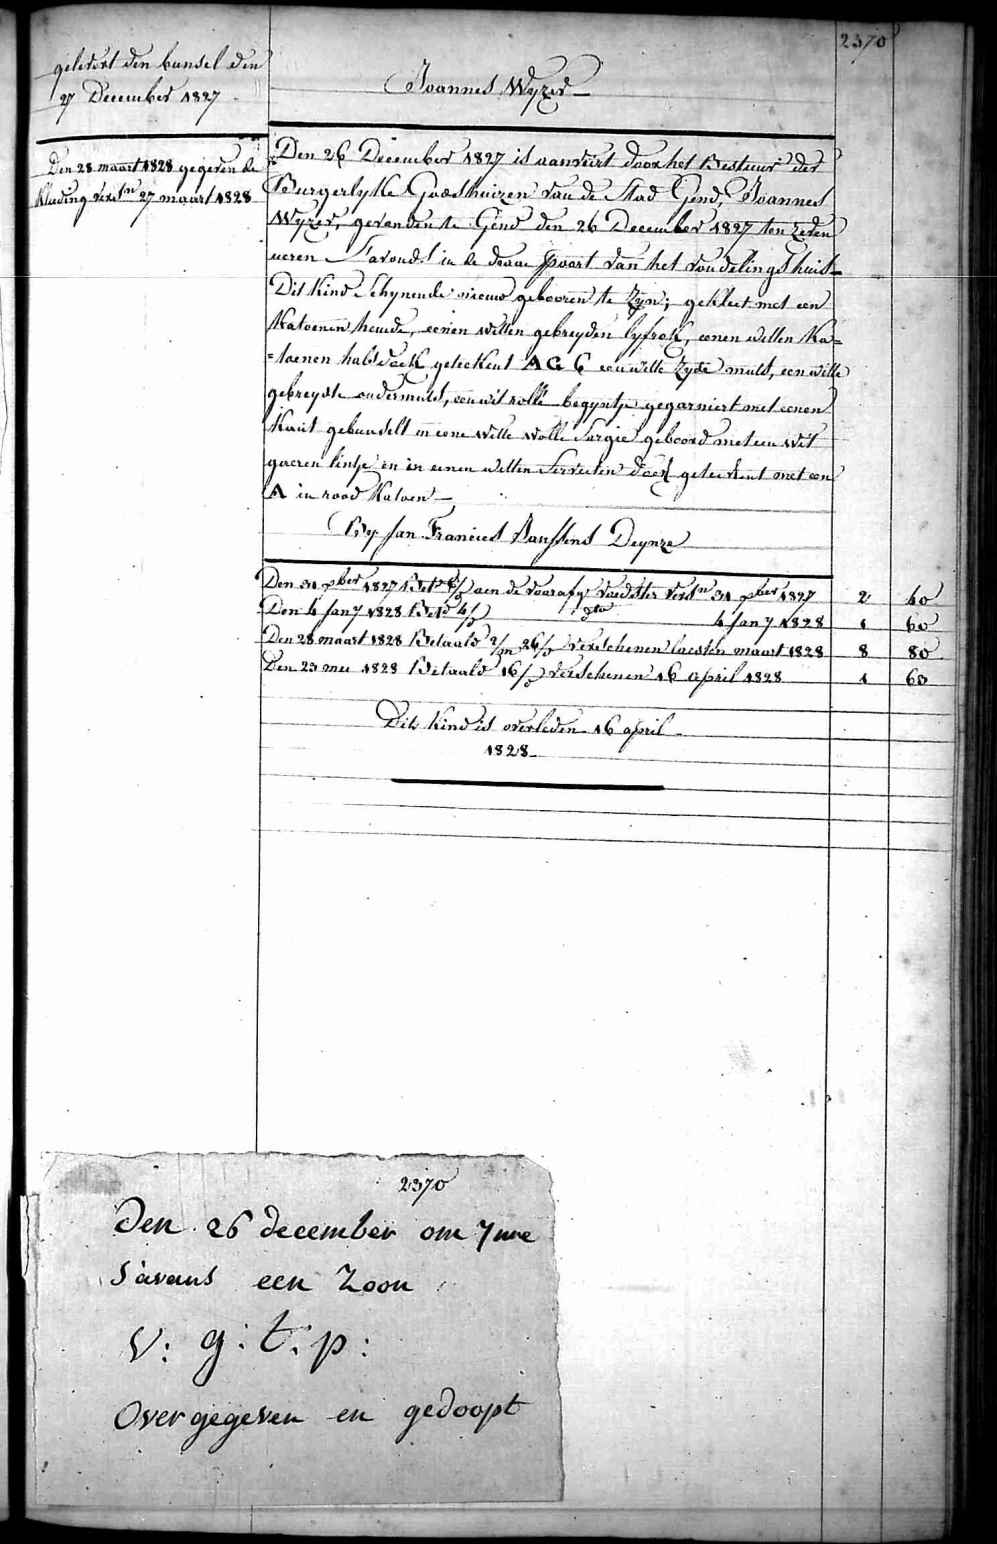 2370
gelevert den bunsel den
27 December 1827
Joannes Wyzer
Den 28 maart 1828 gegeven de
kleeding verstn 27 maart 1828
Den 26 December 1827 is aanveirt door het Bestuur der
Burgerlyke Godshuizen van de Stad Gend, Joannes
Wyzer, gevonden te Gend den 26 December 1827 ten zeven
ueren s'avonds in de draae poort van het vondelings huis
Dit Kind schynende nieuw gebooren te zyn; gekleet met een
Katoenen hemde, eenen witten gebreyden lyfrok, eenen witten Ka=
=toenen halsdoek geteekent AG 6 een witte zyde muts, een witte
gebreyde ondermuts, een wit rolle begyntje gegarniert met eenen
Kant gebunselt in eene witte wolle Sargie geboord met een wit
gaeren lintje en in eenen witten Servietten doek geteekent met een
A in rood Katoen
By Jan Francies Danssens Deynze
Den 31 xber 1827 Bet aen de voedster verstn 31 xber 1827 2 40
Den 4 Janry 1828 Bet 4 dto 4 Janry 1828 1 60
Den 28 maart 1828 Betaald 2/m 26/ verschenen laesten maart 1828 8 80
Den 23 mei 1828 Betaald 16/ verschenen 16 april 1828 1 60
Dits kind is overleden 16 april
1828
2370
Den 26 december om 7 ure
s'avans een zoon
V: g: t: p:
Over gegeven en gedoopt